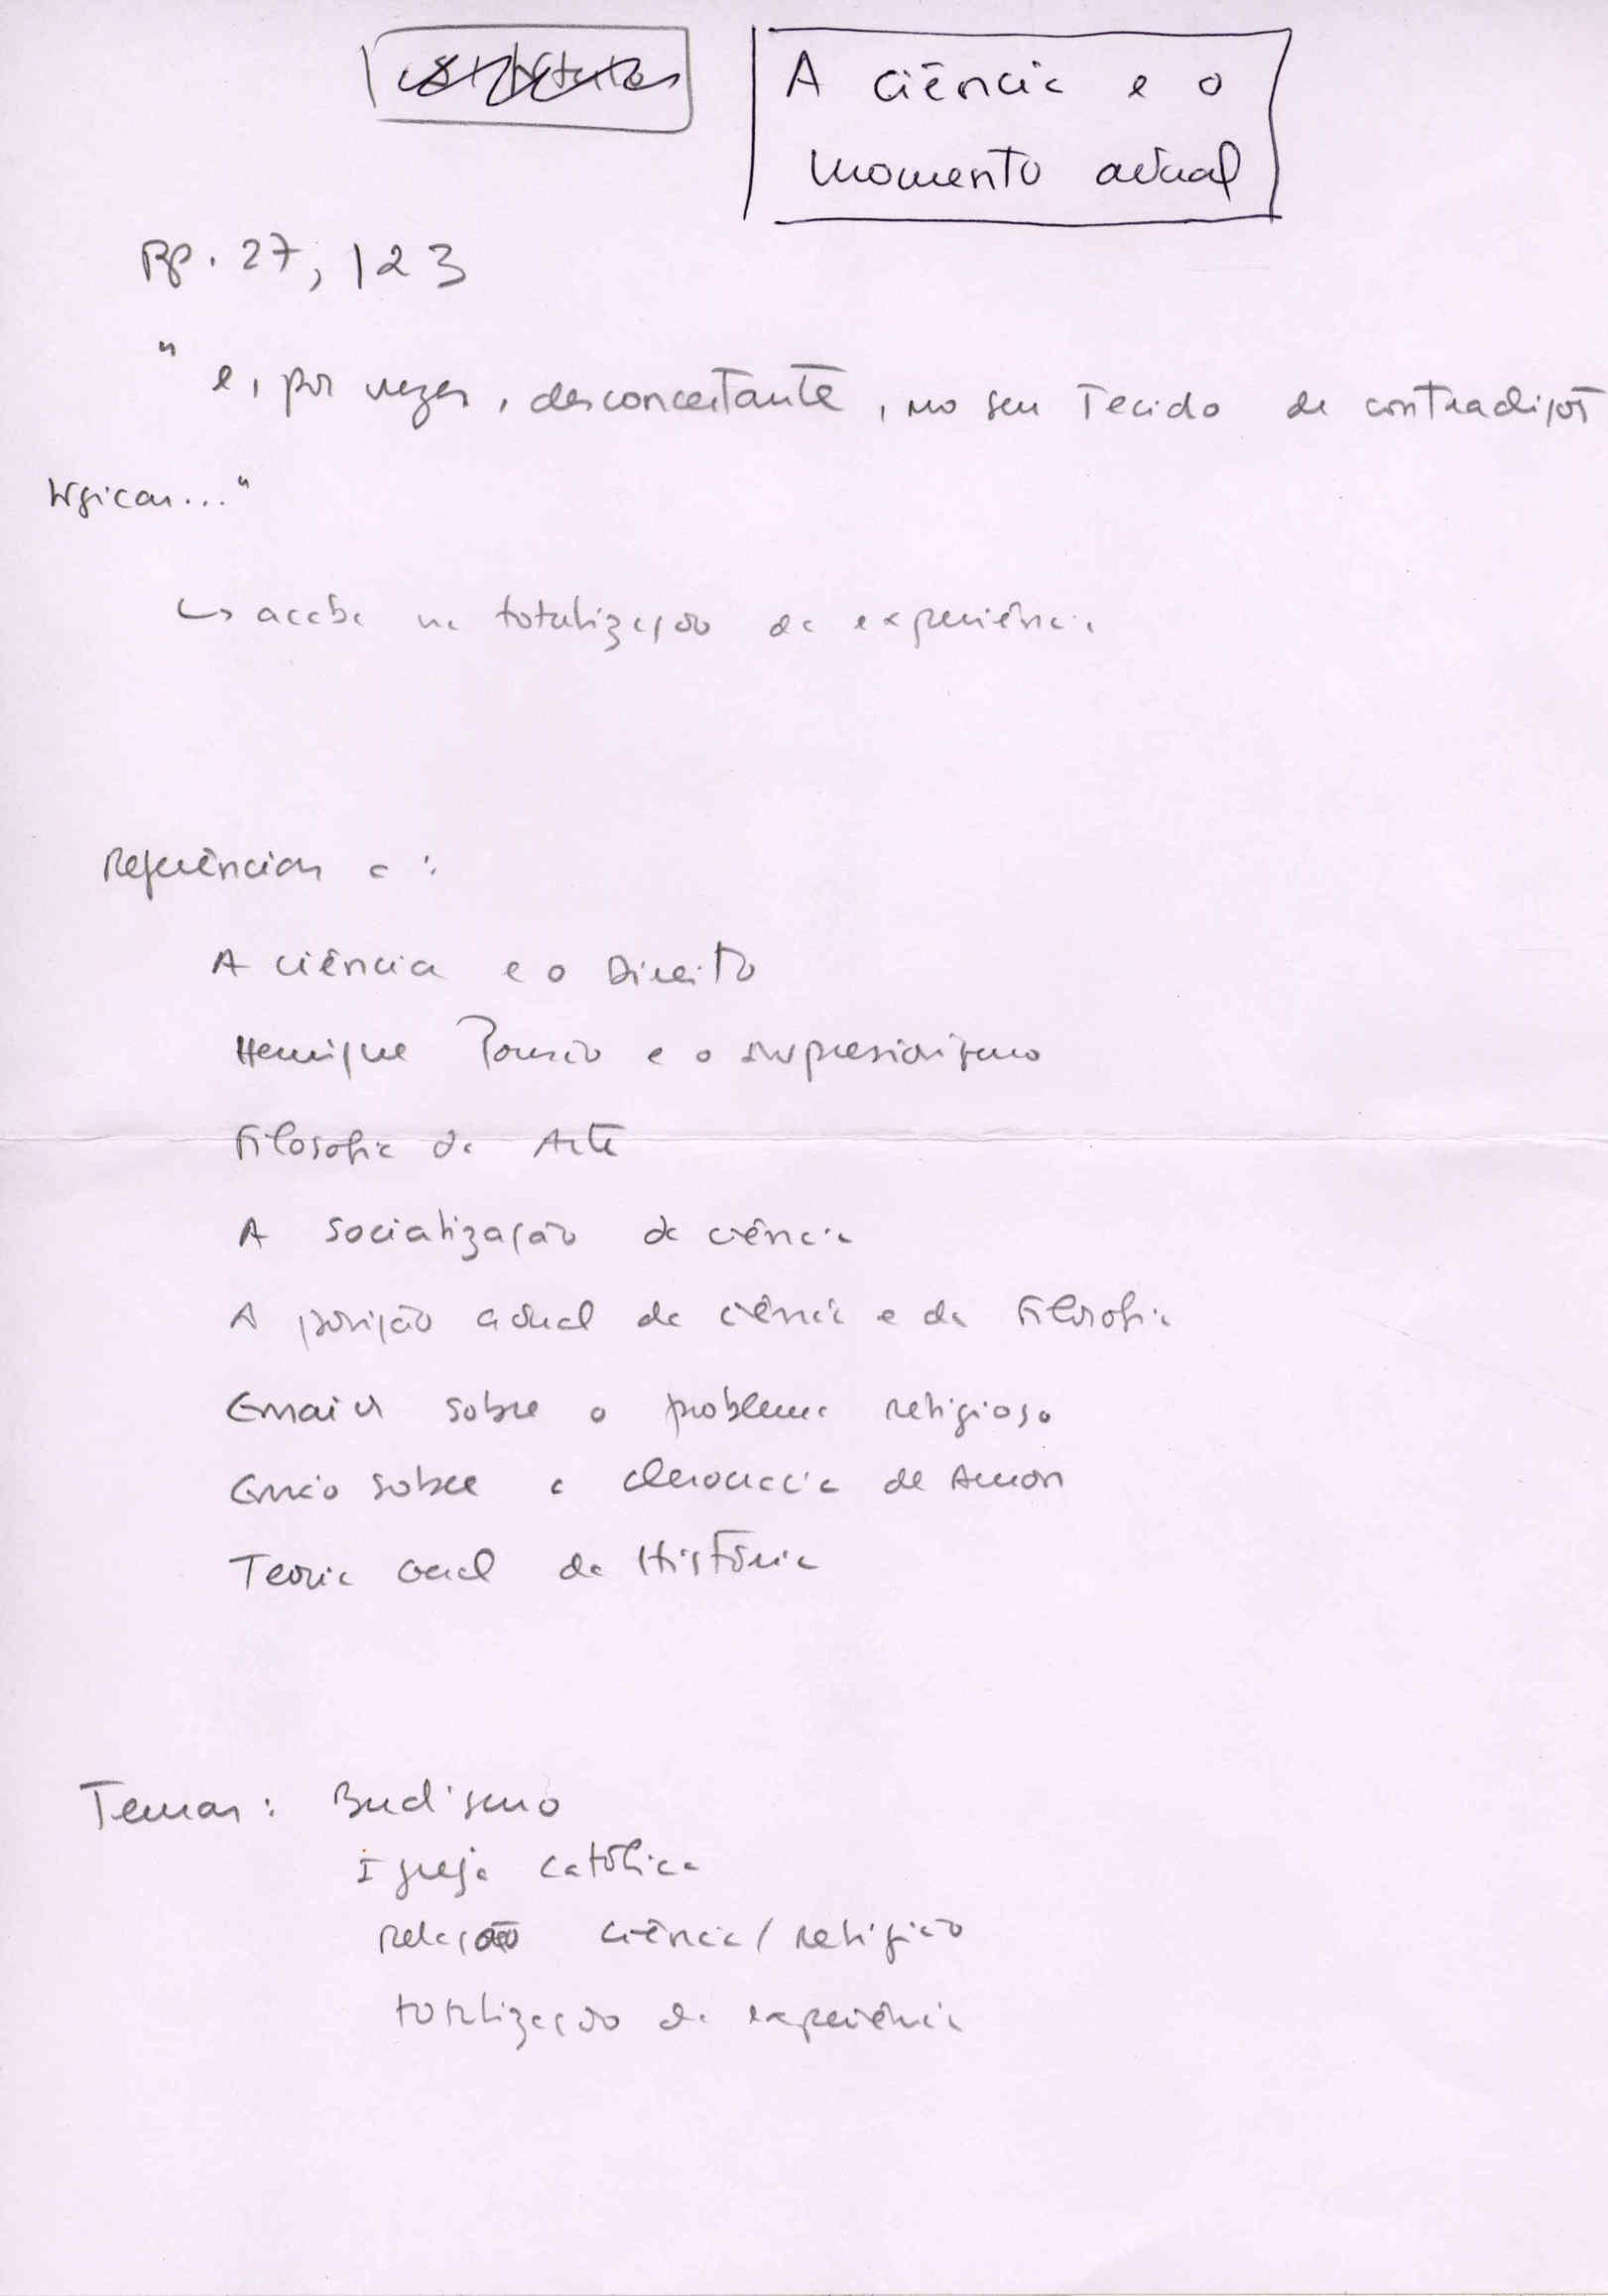 A ciência e o
momento actual
pp. 27, 123
" e, por vezes, desconcertante, no seu tecido de contradições
lógicas..."
↳ acaba na totalização da experiência
Referências a:
A ciência e o Direito
Henrique Pousão e o impressionismo
Filosofia da Arte
A socialização da ciência
A posição actual da ciência e da Filosofia
Ensaios sobre o problema religioso
Ensaio sobre a de Amon
Teoria Geral da História
Temas: Budismo
Igreja católica
relação ciência/religião
totalização da experiência